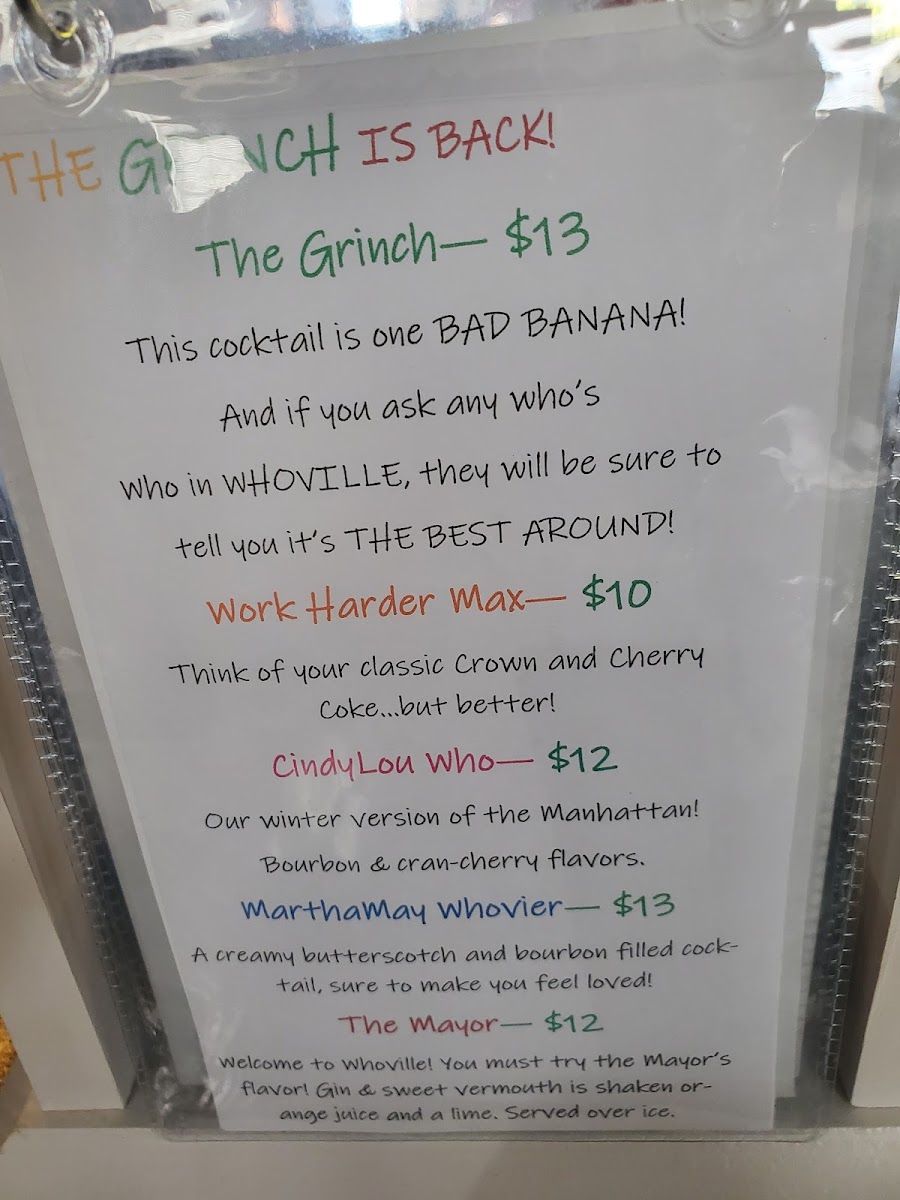 THE GRINCH IS BACK!
The Grinch— $13
This cocktail is one BAD BANANA!
And if you ask any who's
who in WHOVILLE, they will be sure to
tell you it's THE BEST AROUND!
Work Harder Max— $10
Think of your classic Crown and Cherry
Coke...but better!
CindyLou Who— $12
Our winter version of the Manhattan!
Bourbon & cran-cherry flavors.
MarthaMay Whovier— $13
A creamy butterscotch and bourbon filled cock-
tail, sure to make you feel loved!
The Mayor— $12
Welcome to Whoville! You must try the Mayor's
flavor! Gin & sweet vermouth is shaken or-
ange juice and a lime. Served over ice.